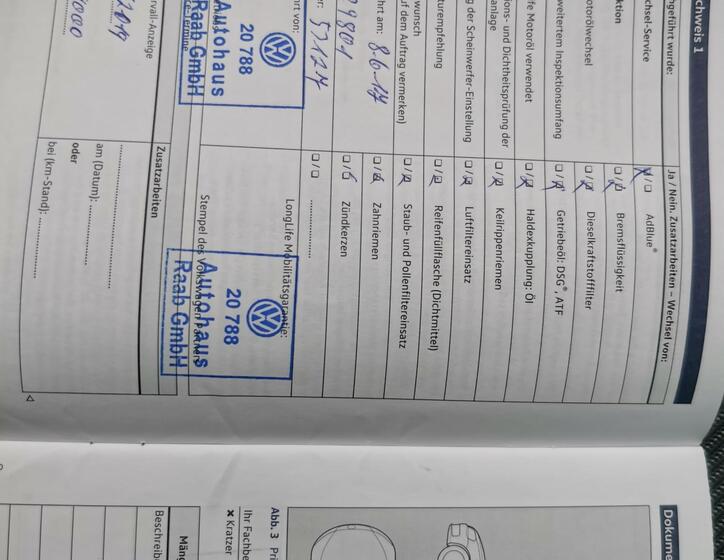 chweis 1
ngeführt wurde:
Ja / Nein. Zusatzarbeiten – Wechsel von:
chsel-Service
AdBlue®
ktion
Bremsflüssigkeit
otorölwechsel
Dieselkraftstofffilter
weitertem Inspektionsumfang
Getriebeöl: DSG®, ATF
ife Motoröl verwendet
Haldexkupplung: Öl
ons- und Dichtheitsprüfung der
anlage
Keilrippenriemen
g der Scheinwerfer-Einstellung
Luftfiltereinsatz
turempfehlung
Reifenfüllflasche (Dichtmittel)
wunsch
f dem Auftrag vermerken)
Staub- und Pollenfiltereinsatz
hrt am: 8.6.17
Zahnriemen
9801
Zündkerzen
hrt von:
er: 57127
LongLife Mobilitätsgarantie:
20 788
Autohaus
Raab GmbH
Stempel des Volkswagen Partners
20 788
Autohaus
Raab GmbH
e-Termine
Zusatzarbeiten
rvall-Anzeige
2019
am (Datum):
oder
000
bei (km-Stand):
Dokume
Abb. 3 Pri
Ihr Fachbe
✖ Kratzer
Mäng
Beschreib